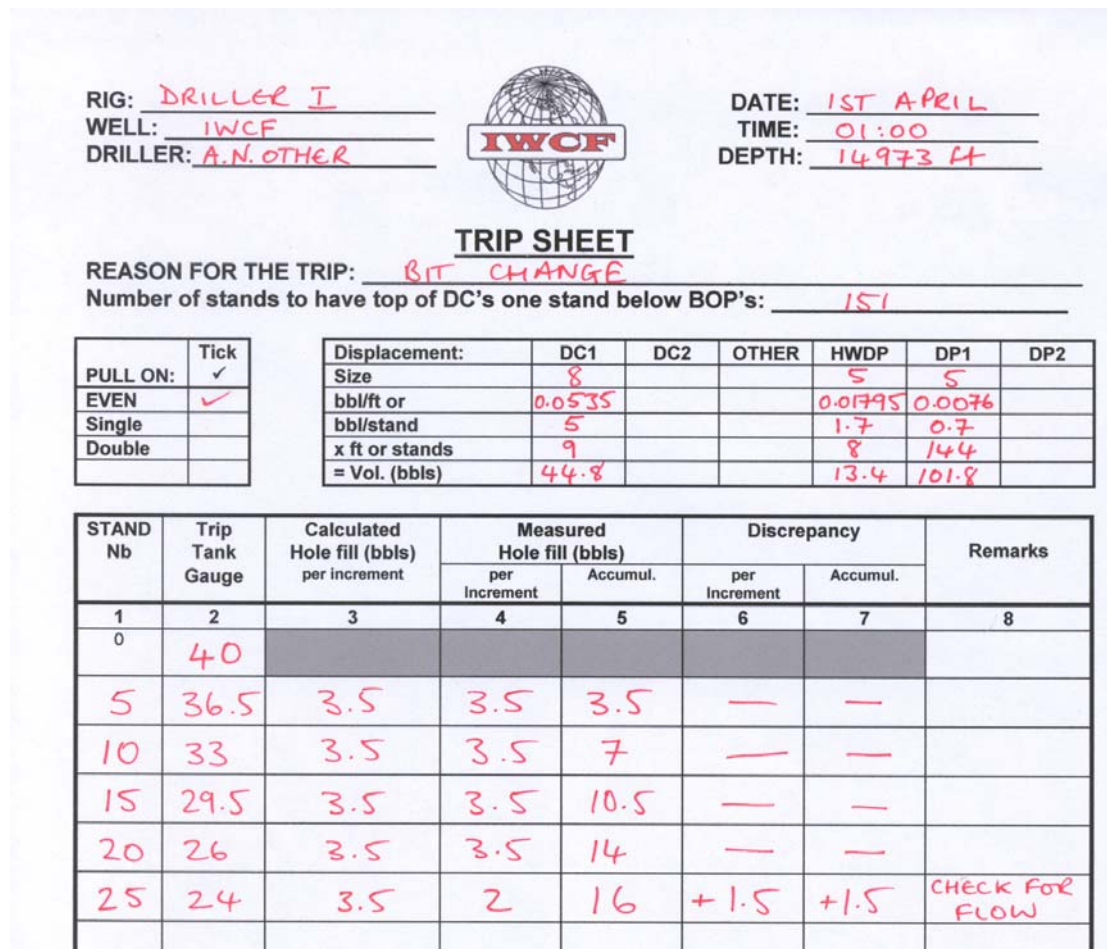 RIG: DRILLER I
WELL: IWCF
DRILLER: A.N. OTHER
IWCF
DATE: 1ST APRIL
TIME: 01:00
DEPTH: 14973 ft
TRIP SHEET
REASON FOR THE TRIP: BIT CHANGE
Number of stands to have top of DC's one stand below BOP's: 151
Tick
PULL ON: ✓
EVEN ✓
Single
Double
Displacement: DC1 DC2 OTHER HWDP DP1 DP2
Size 8 5 5
bbl/ft or 0.0535 0.01795 0.0076
bbl/stand 5 1.7 0.7
x ft or stands 9 8 144
= Vol. (bbls) 44.8 13.4 101.8
STAND Nb Trip Tank Gauge Calculated Hole fill (bbls) per increment Measured Hole fill (bbls) Discrepancy Remarks
per Increment Accumul. per Increment Accumul.
1 2 3 4 5 6 7 8
0 40
5 36.5 3.5 3.5 3.5 — —
10 33 3.5 3.5 7 — —
15 29.5 3.5 3.5 10.5 — —
20 26 3.5 3.5 14 — —
25 24 3.5 2 16 +1.5 +1.5 CHECK FOR FLOW